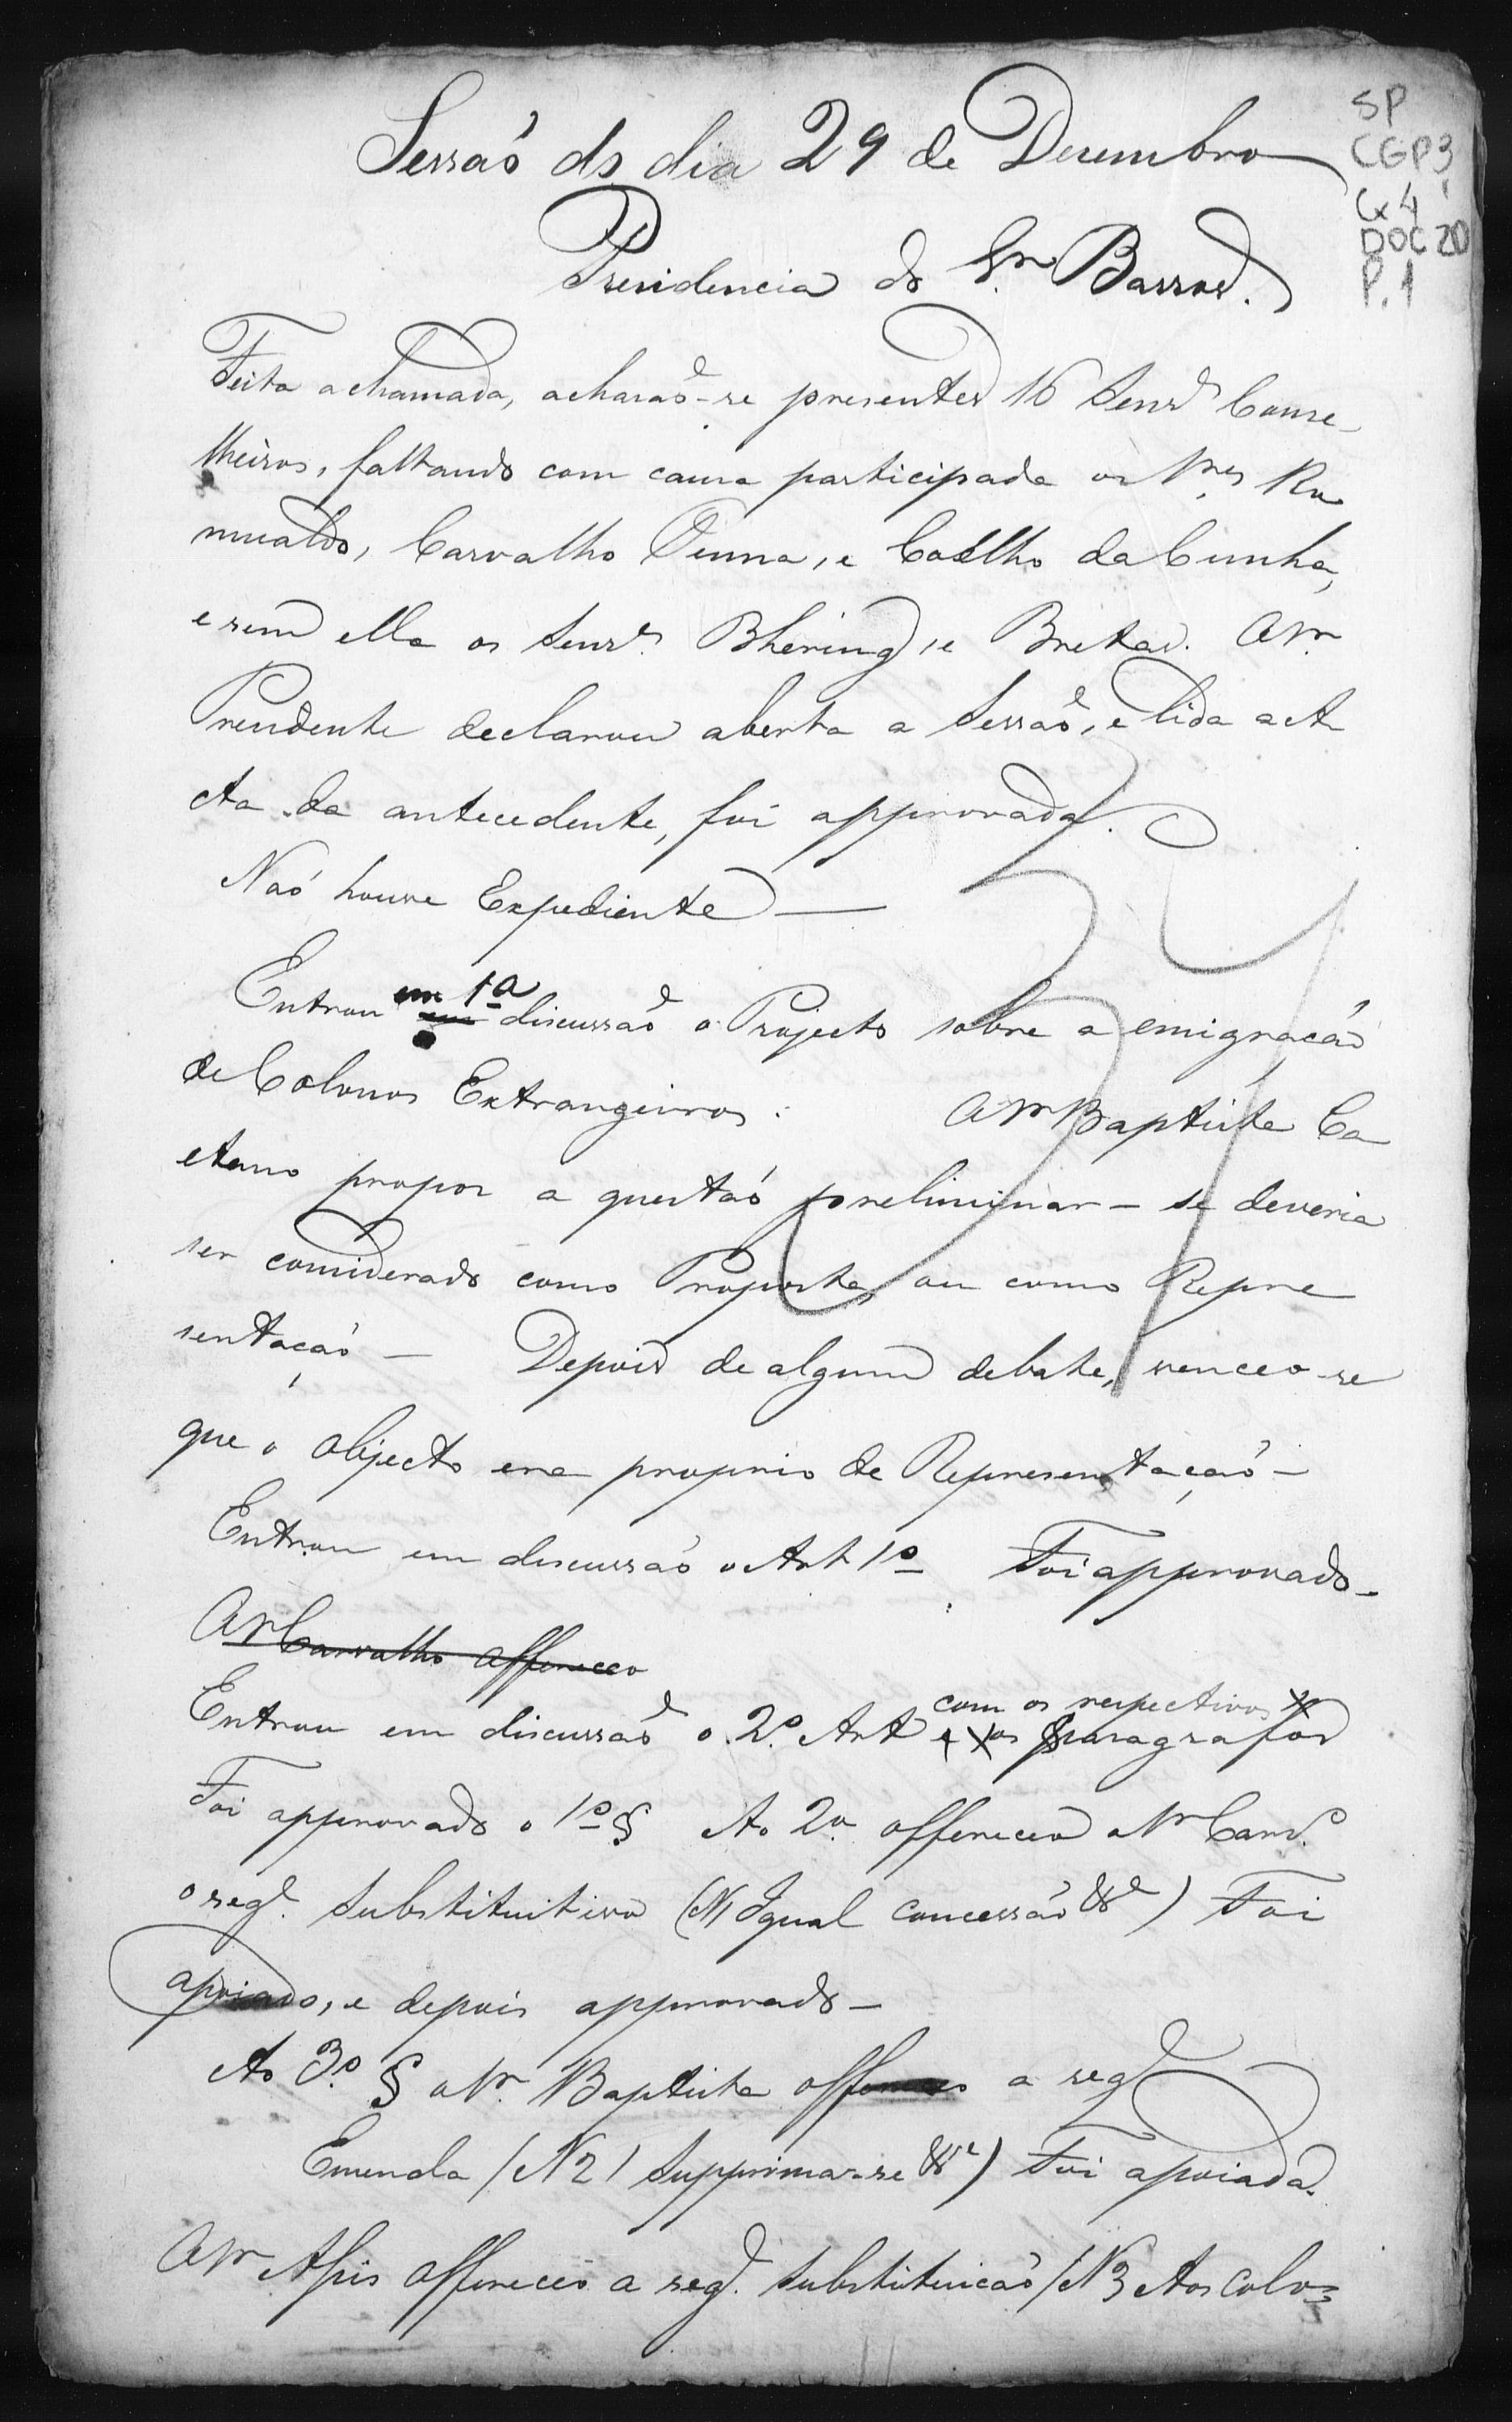 Sessaõ do dia 29 de Dezembro
SP
CGP3,
Cx 4
DOC 20
P. 1
Presidencia do Sr. Barros.
Feita a chamada, acharaõ-se presentes 16 Senrs Conse-
lheiros, faltando com causa participada os Srs Ro
mualdo, Carvalho Penna, e Coelho da Cunha,
e sem ella os Senrs. Bhering, e Bretas. O Sr.
Presidente declarou aberta a Sessaõ, e lida a A
cta da antecedente, foi approvada.
Naõ houve Expediente —
Entrou em 1ª discussaõ o Projecto sobre a emigracaõ
de Colonos Extrangeiros. O Sr Baptista Ca
etano propoz a questaõ preliminar — se deveria
ser considerado como Proposta, ou como Repre
sentaçaõ — Depois de algum debate, venceo-se
que o objecto era proprio de Representaçaõ —
Entrou em discussaõ o Art 1º Foi approvado —
O Sr Carvalho offereceo
Entrou em discussaõ o 2º Art com os respectivos paragrafos
Foi approvado o 1º § Ao 2º offereceo o Sr Carvº
o segᵉ. Substituitivo (N1 Igual concessaõ &ª) Foi
apoiado, e depois approvado —
Ao 3º § o Sr. Baptista offereceo a segᵉ
Emenda (N2) Supprima-se &ª) Foi apoiada.
O Sr Assis offereceo a segᵉ. Substituicaõ (N3 Aos Colo=